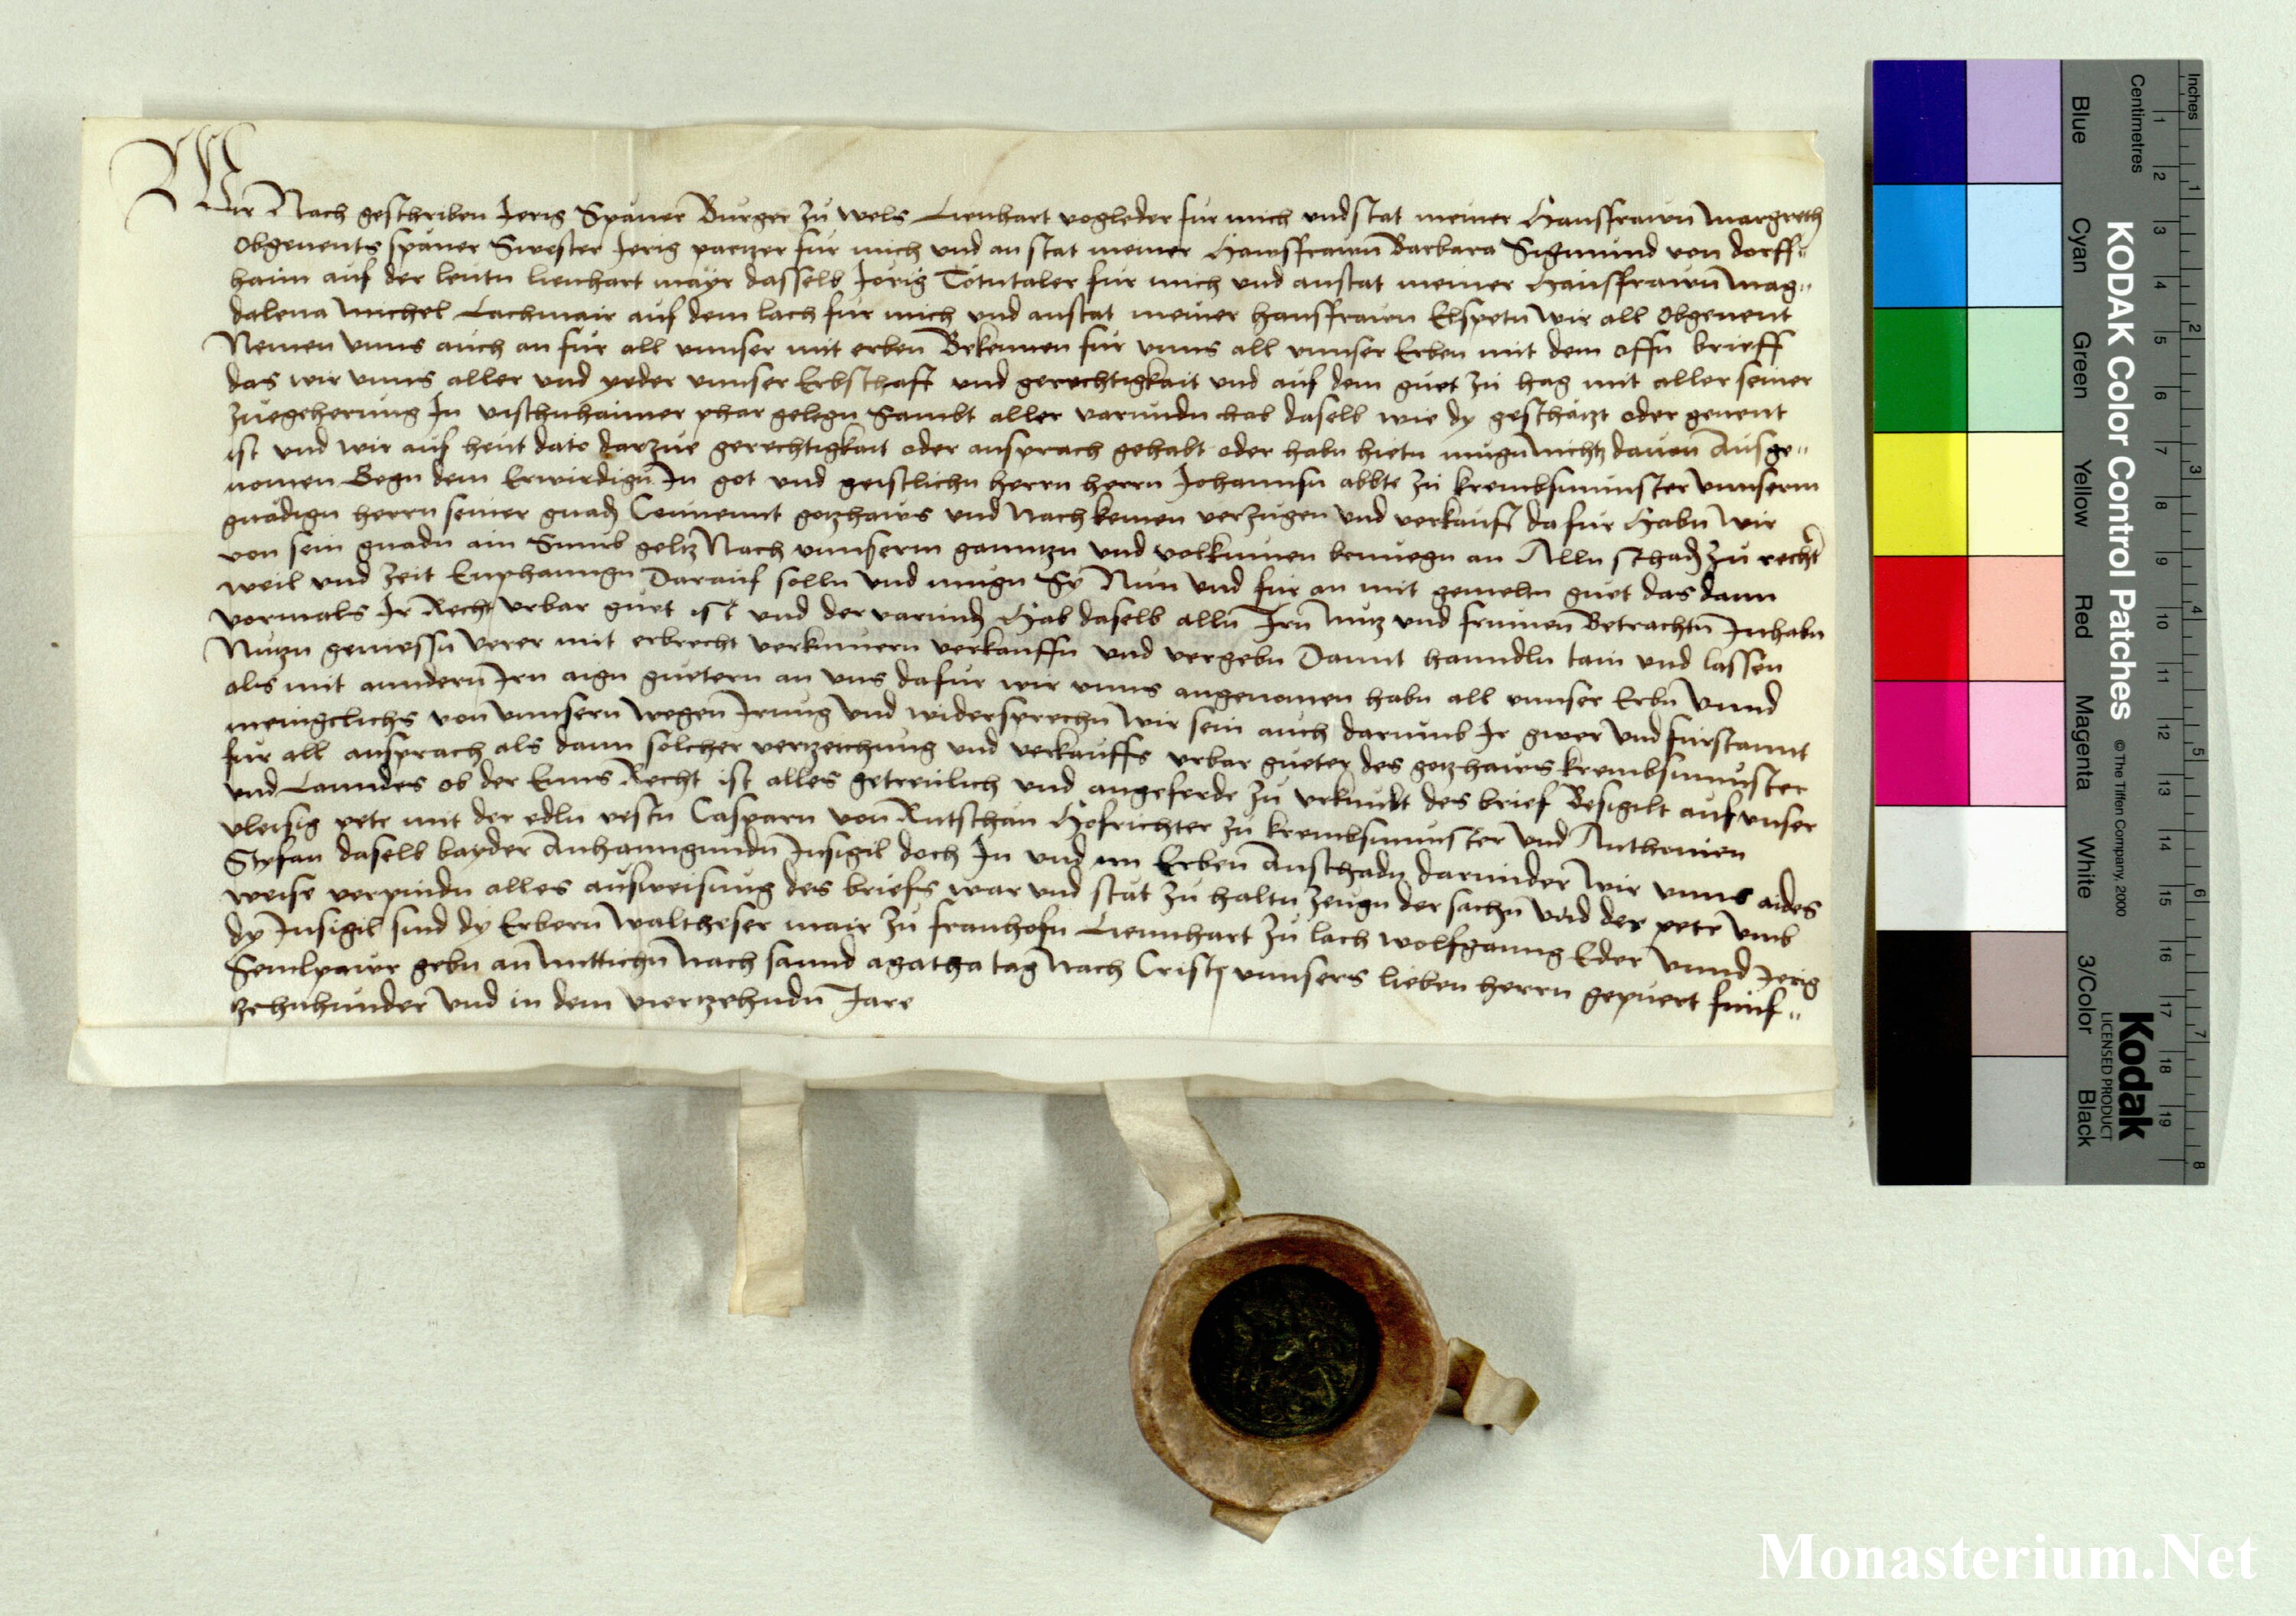 Wir Nach geschriben Jerig Spaner Burger zu wels Lienhart vogleder fur mich und stat meiner Hausfrawn Margreth
Obgenents spaner Swester Jerig partzer fur mich und an stat meiner Hawsfrawn Barbara Sigmund von dorff„
haim auf der leutn lienhart mayr dasselb Jorig Totntaler fur mich und anstat meiner Hausfrawn Mag„
dalena Michel Lachmair auf dem lach fur mich und anstat meiner hausfrawn Elspetn Wir all Obgenent
Nemen Vnns auch an fur all vnnser mit erben Bekennen fur vnns all vnnser Erben mit dem offn brieff
das wir vnns aller und yeder vnnser Erbschaft und gerechtigkait und auf dem guet zu hag mit aller seiner
zuegeherung Jn vischnhaimer phar gelegn Sambt aller varundn hab daselb wie dy geschatzt oder genent
ist und wir auf heut dato darzue gerechtigkait oder ansprach gehabt oder habn hietn mugn nichtz dauon Ausge„
nomen Gegn dem Erwirdign Jn got und geistlichn herrn herrn Johannsn abbte zu krembsmunster vnnserm
gnadign herrn seiner gnad Conuennt gotzhaws und Nachkomen verzigen und verkauft dafur Habn Wir
von sein gnadn ain Sumb geltz Nach vnnserm ganntzn und volkumen benuegn an Alln schad zu recht
weil und zeit Enphanngn Darauf solln und mugn Sy Nun und fur an mit gemeltn guet das dann
vormals Jr Recht vrbar guet ist und der varund Hab daselb alln Jrn Nutz und frumen Betrachtn Jnhabn
Nutzn geniessn verer mit erbrecht verkumern verkauffn und vergebn Damit hanndln tain und lassen
als mit anndern Jrn aign guetern an vns dafur wir vnns angenomen habn all vnnser Erbn Vnnd
menigclichs von vnnsern wegen Jrrung Vnd widersprechn Wir sein auch darumb Jr gwer Vnd furstannt
fur all ansprach als dann solcher vertzeichung und verkauffs vrbar gueter des gotzhaws krembsmunster
und Lanndes ob der Enns Recht ist alles getreulich und angeferde zu vrkundt des brief Besigilt auf vnser
vleisig pete mit der edln vestn Casparn von Rutschan Hofrichter zu krembsmunster und Anthonien
Styfan daselb bayder Anhanngundn Jnsigil doch Jn und irn Erben Anschadn darunder Wir vnns aides
weise verpindn alles ausweisung des briefs war und stat zu haltn zeugn der sachn Vnd der pete vmb
dy Jnsigil sind dy Erbern Waltheser mair zu franhofn Liennhart zu lach wolfganng Eder Vnnd Jerig
Semlpawr gebn an Mittichn Nach sannd agatha tag Nach Cristj vnnsers lieben herrn gepuert funf„
tzehnhunder Vnd in dem viertzehndn Jare
KODAK Color Control Patches
© The Tiffen Company, 2000
Kodak
LICENSED PRODUCT
Inches
Centimetres
1 2 3 4 5 6 7 8 9 10 11 12 13 14 15 16 17 18 19
1 2 3 4 5 6 7 8
Blue
Cyan
Green
Yellow
Red
Magenta
White
3/Color
Black
Monasterium.Net